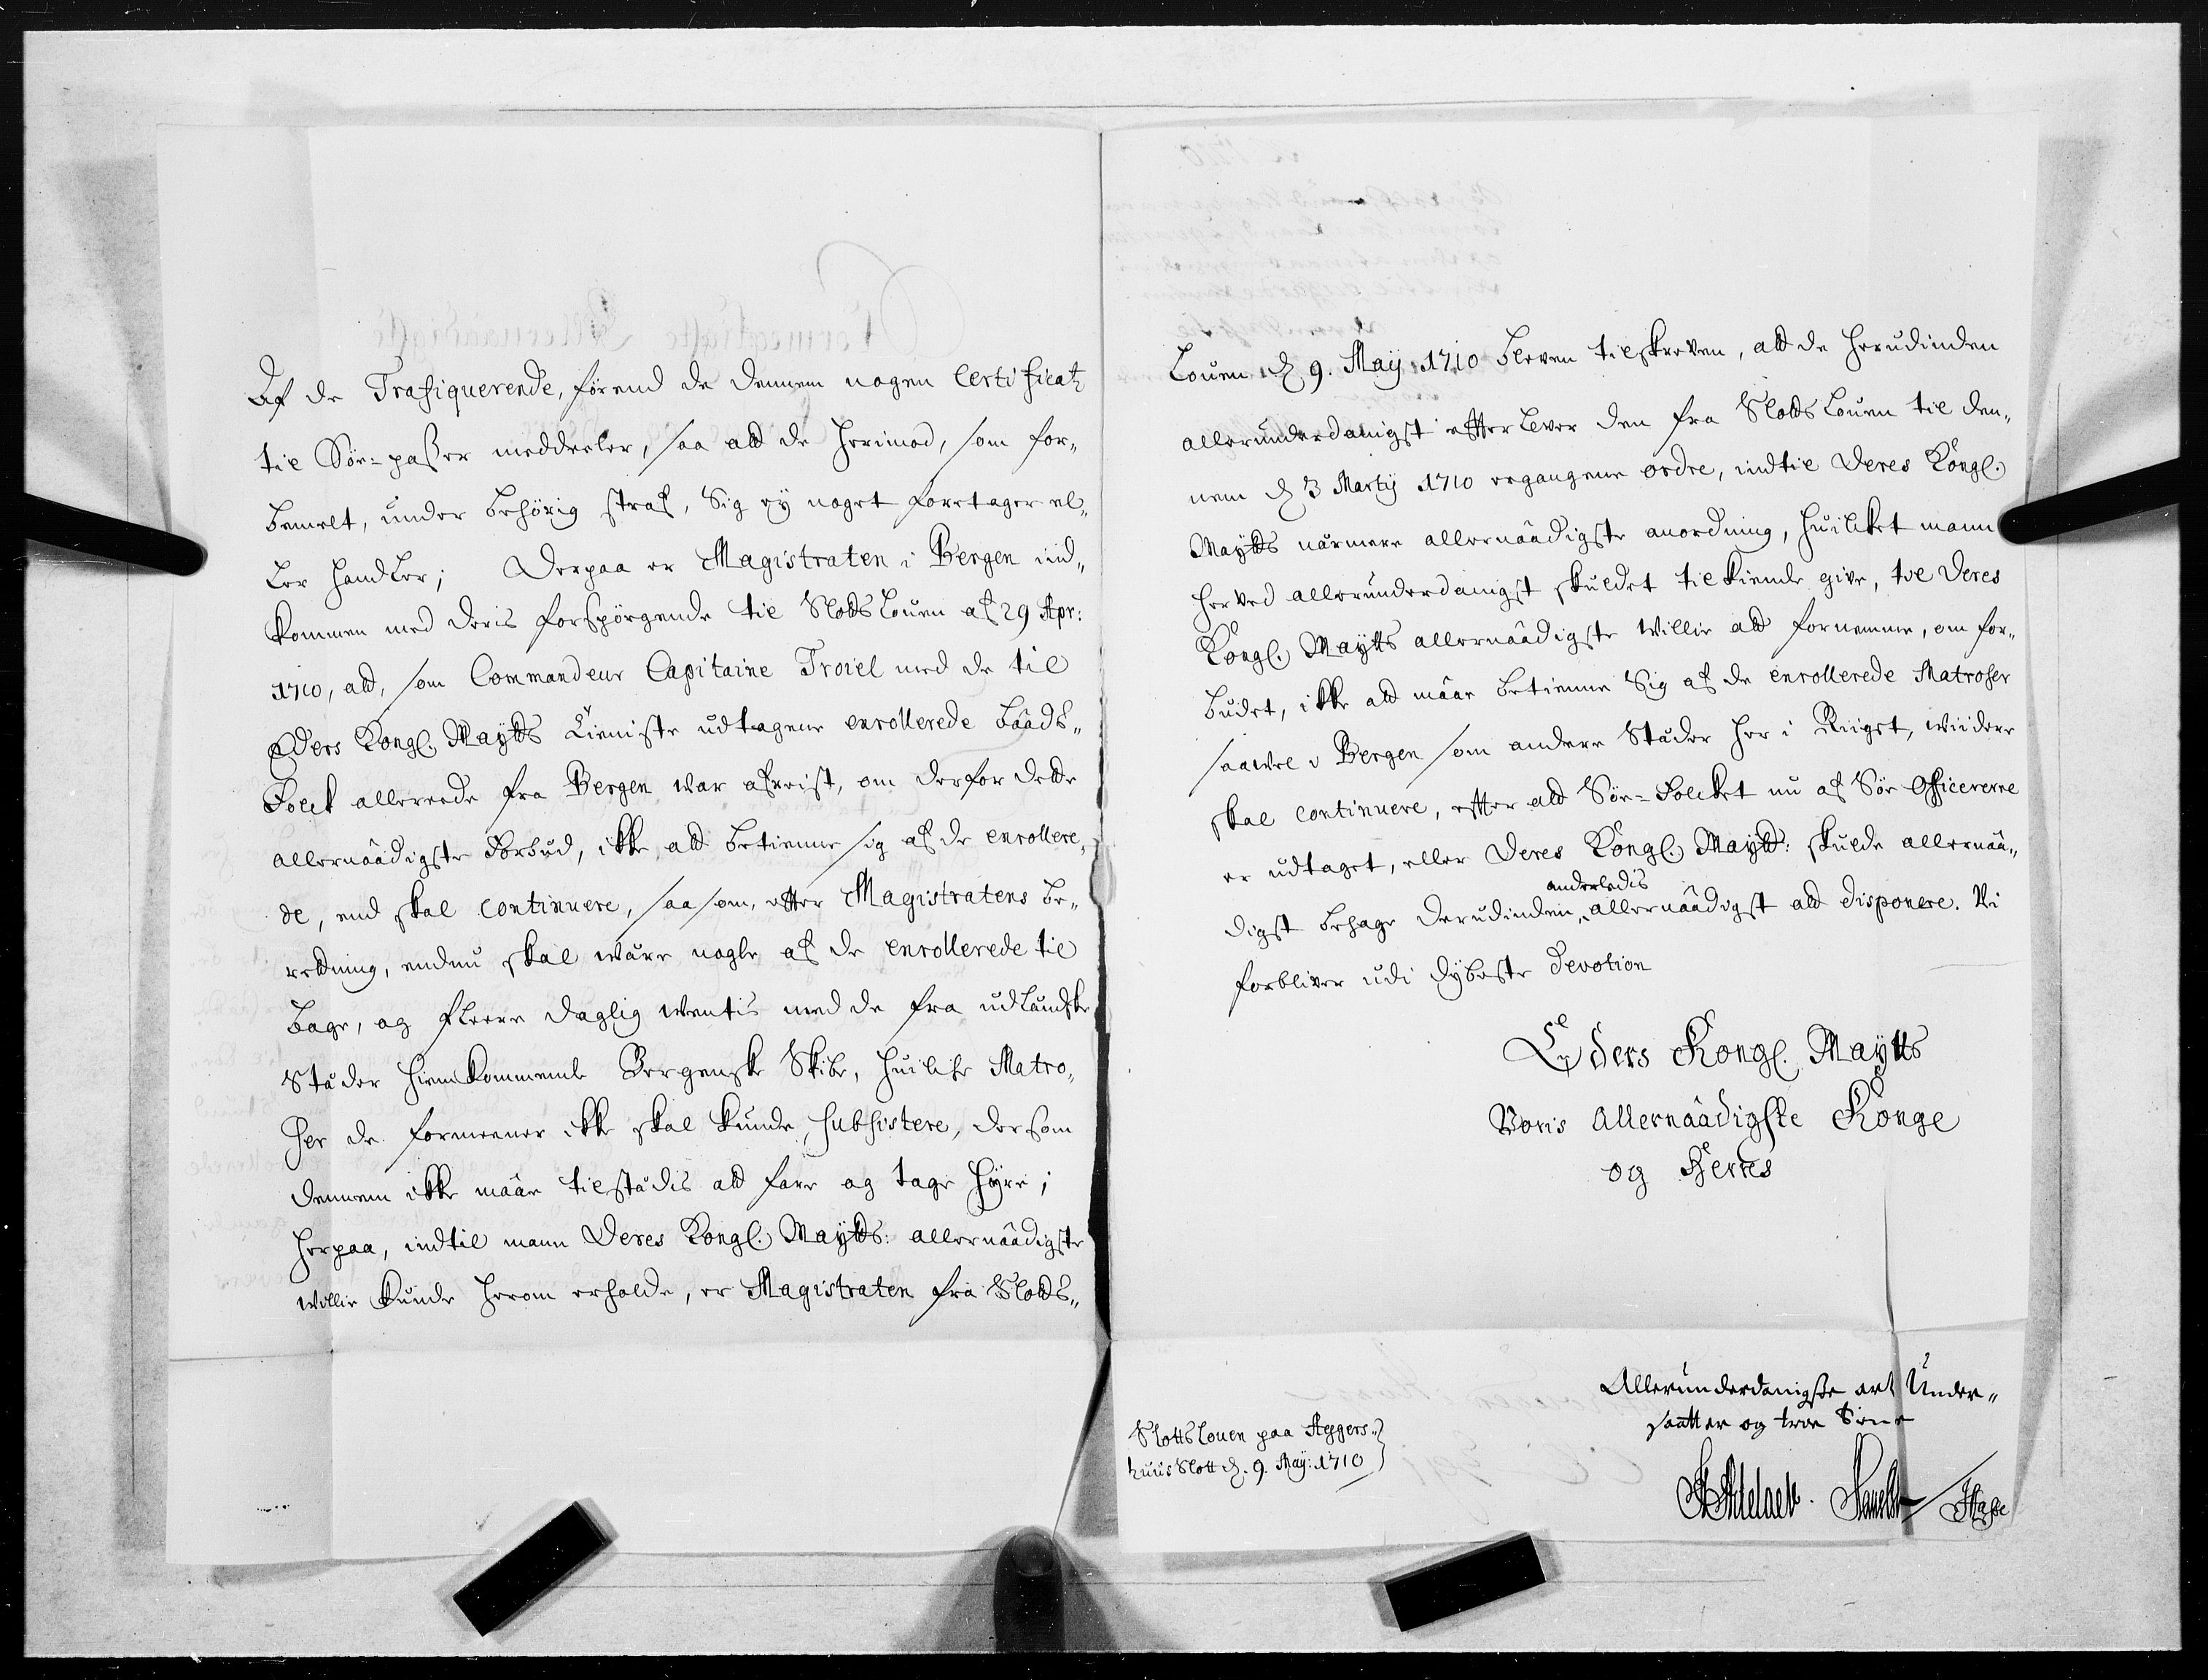 Af de Trafiquerende, førend de dennem nogen Certificatz
til Søe-passer meddeeler, saa att de herimod, som for„
bemelt, under behørig straf, Sig ey noget foretager el„
ler handler; Derpaa er Magistraten i Bergen ind„
kommen med deris forspørgende til Slotsloven af 29 Apr:
1710, att, som Commandeur Capitaine Troiel med de til
Eders Kongl. Maytts Tieniste udtagene enrollerede baads„
Folck allereede fra Bergen var afreist, om derfor dette
allernaadigste Forbud, ikke att betienne sig af de enrollere„
de, end skal continuere, saasom, efter Magistratens be„
retning, endnu skal være nogle af de enrollerede til
bage, og fleere daglig ventis med de fra udlandske
Stæder hiemkommende Bergenske Skibe, huilke Matro„
ser de formeener ikke skal kunde subsistere, dersom
dennem ikke maae tilstædis att fare og tage hyre;
herpaa, indtil mann Deres Kongl. Maytts: allernaadigste
Willie kunde herom erholde, er Magistraten fra Slots„
Loven d. 9. May 1710 bleven tilskreven, att de herudinden
allerunderdanigst efterlever den fra Slotsloven til den„
nem d. 3 Martij 1710 ergangene ordre, indtil Deres Kongl.
Maytts nærmere allernaadigste anordning, huilket mann
herved allerunderdanigst skulde tilkiende give, til Deres
Kongl. Maytts allernaadigste Willie att fornemme, om for„
budet, ikke att maae betienne Sig af de enrollerede Matroser
saavel i Bergen som andere Stæder her i Riiget, viidere
skal continuere, efter att Søe-Folcket nu af Søe Officererne
er udtaget, eller Deres Kongl. Maytt: skulde allernaa„
digst behage derudinden anderledis allernaadigst att disponere. Vi
forbliver udi dybeste Devotion
Eders Kongl. Maytts
Voris Allernaadigste Konge
og Herres
Allerunderdanigste arf Under„
saatter og troe Tiener
Slottsloven paa Aggers„
huus Slott d. 9. May: 1710